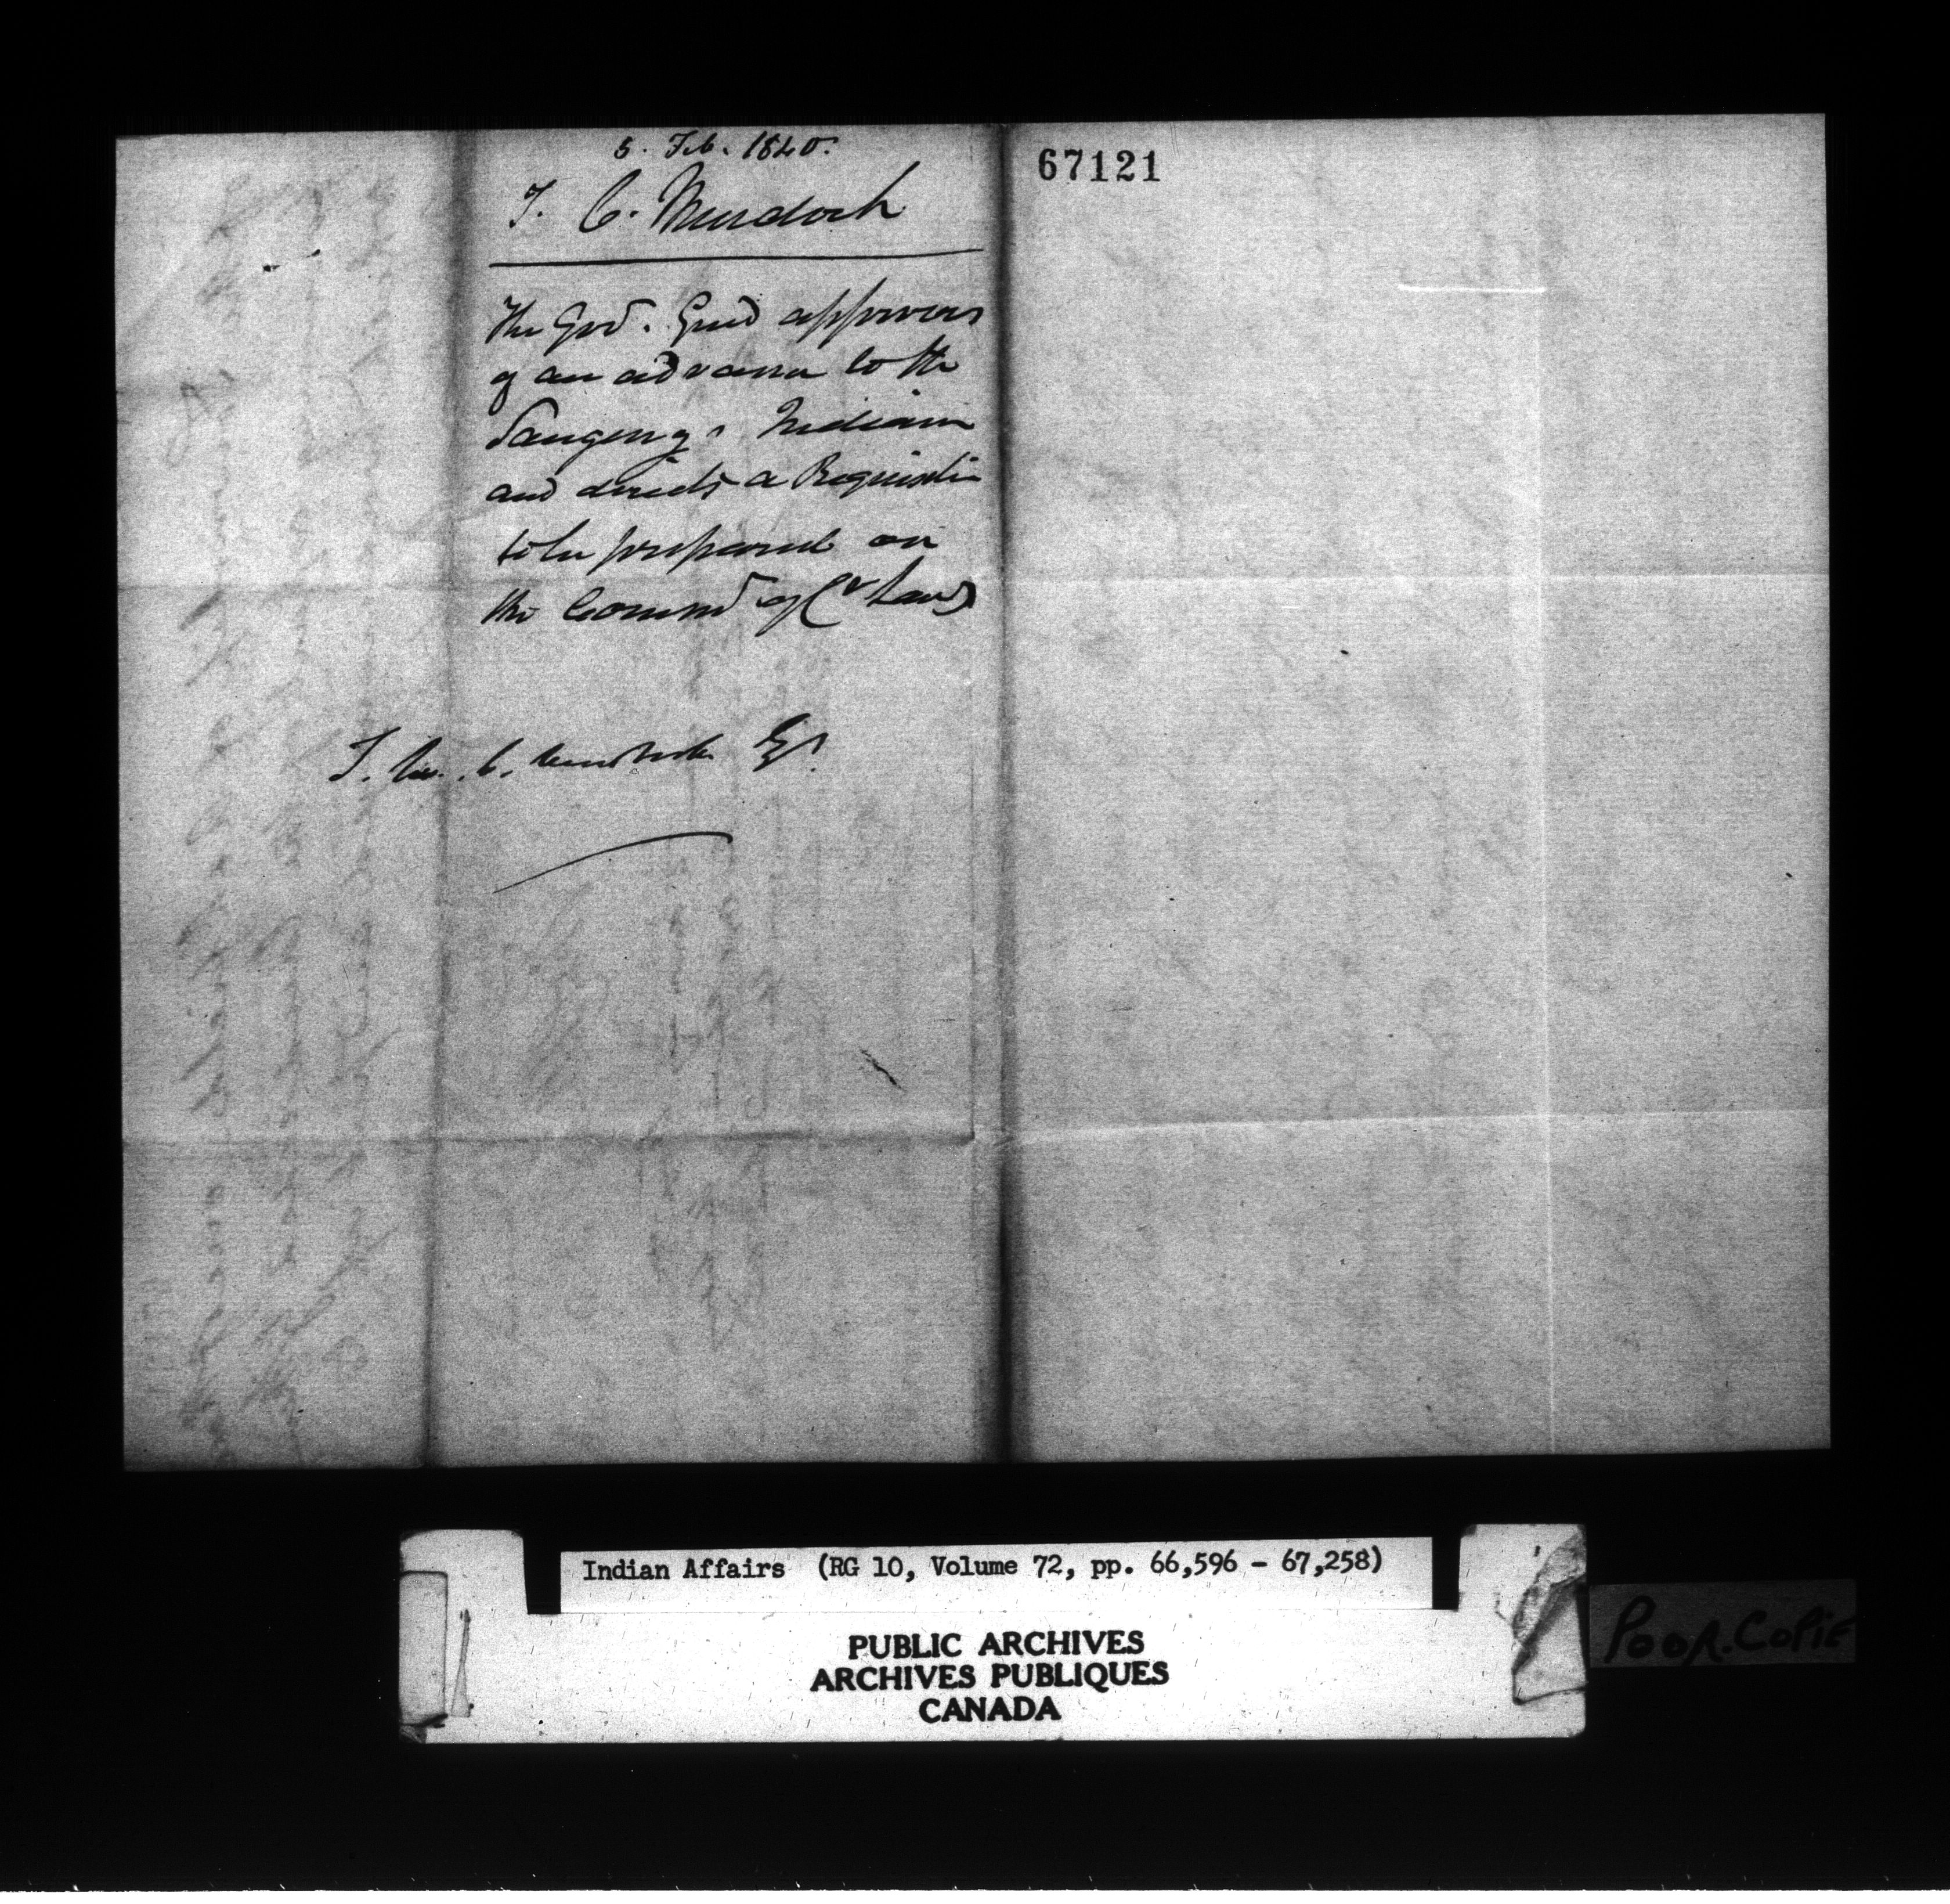 5. Feb. 1840.
T. C. Murdoch
67121
The Govr. Genl approves
of an advance to the
Saugeeng Indians
and directs a Requisition
to be prepared on
the Commr of Cr Lands
T. C. Murdoch Esqr
Indian Affairs (RG 10, Volume 72, pp. 66,596 - 67,258)
PUBLIC ARCHIVES
ARCHIVES PUBLIQUES
CANADA
POOR.COPIE